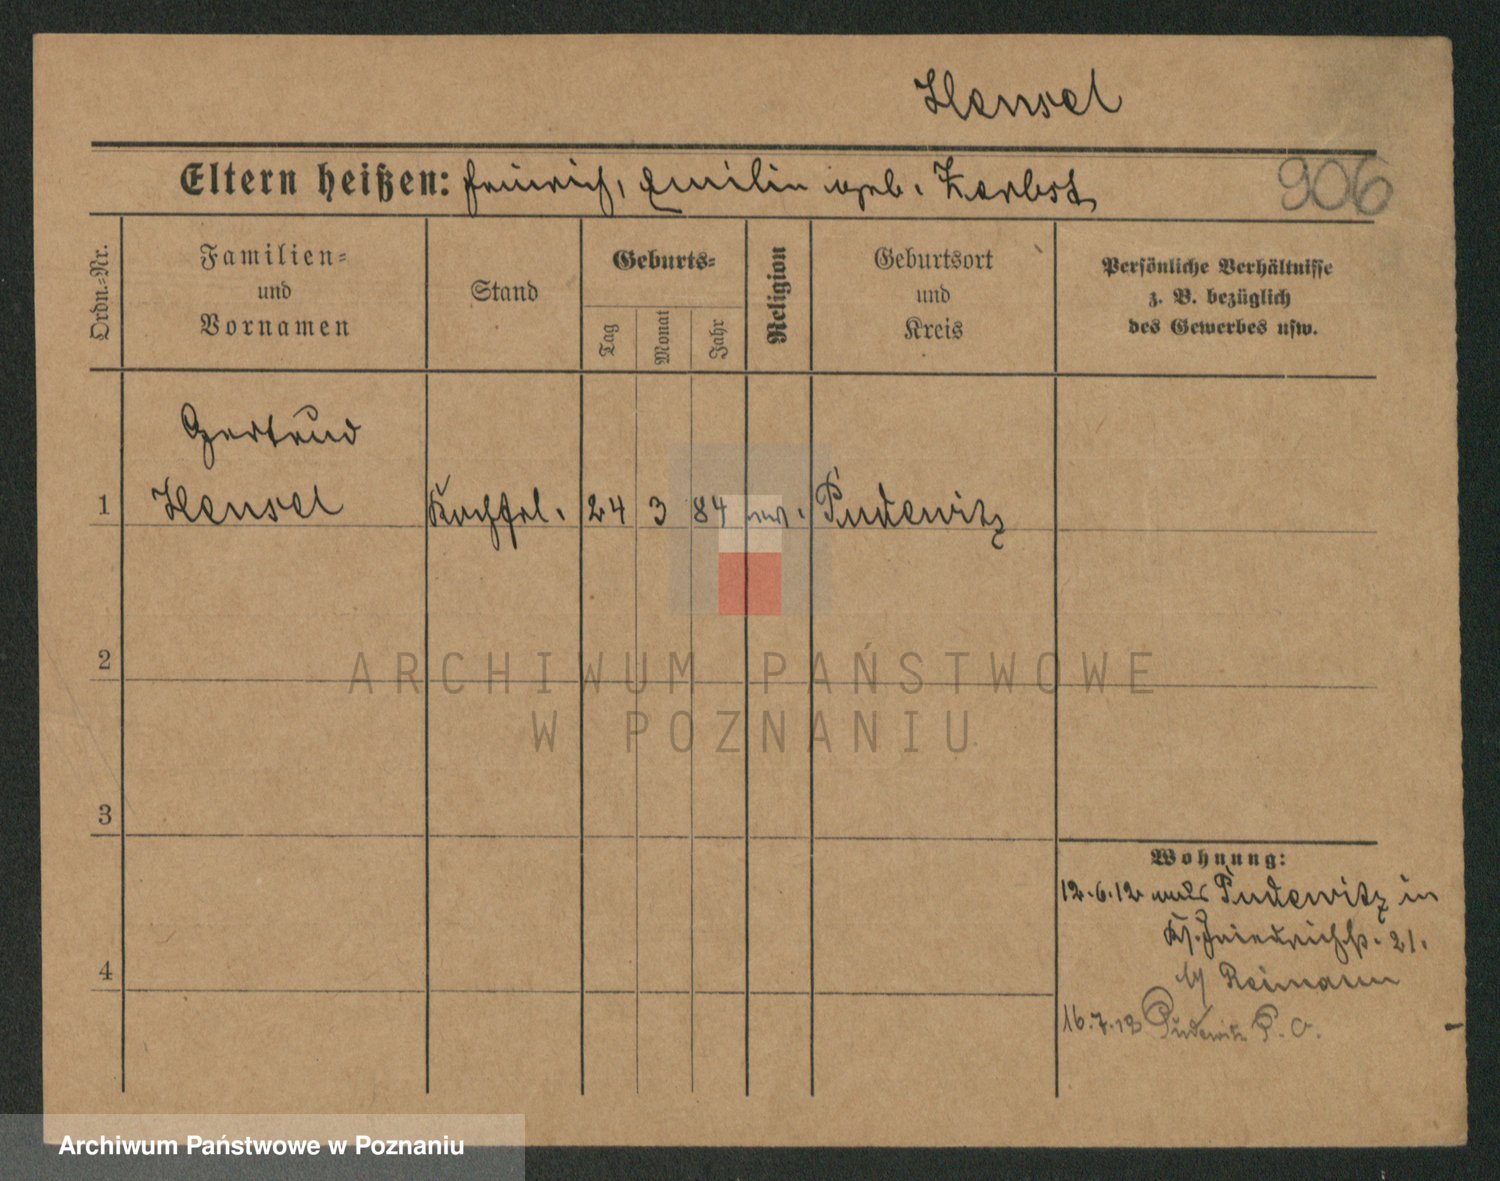 Hensel
Eltern heißen: Heinrich, Emilie geb. Zerbst
906
Ordn.-Nr.
Familien-
und
Vornamen
Stand
Geburts-
Tag
Monat
Jahr
Religion
Geburtsort
und
Kreis
Persönliche Verhältnisse
z. B. bezüglich
des Gewerbes usw.
Gertrud
1 Hensel Kochfrl. 24 3 84 ev. Pudewitz
2
3
4
Wohnung:
12.6.12 aus Pudewitz in
Friedrichstr. 21.
b/ Reimann
16.7.12 Pudewitz P. O.
ARCHIWUM PAŃSTWOWE
W POZNANIU
Archiwum Państwowe w Poznaniu